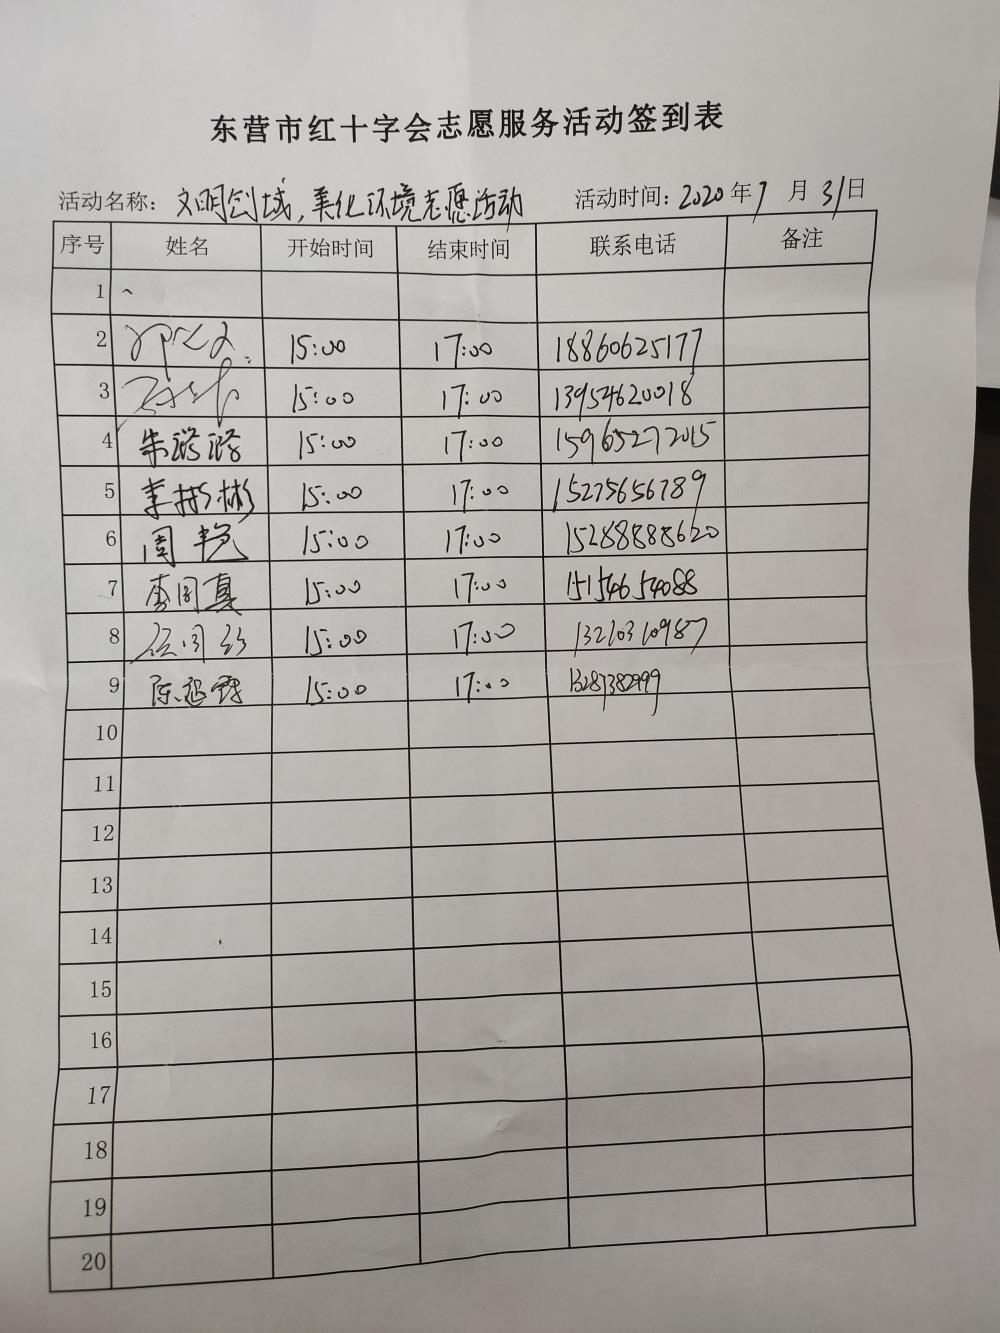 东营市红十字会志愿服务活动签到表
活动名称：文明创城，美化环境志愿活动 活动时间：2020年7月31日
序号 姓名 开始时间 结束时间 联系电话 备注
1
2 15:00 17:00 18860625177
3 15:00 17:00 13954620018
4 朱潞潞 15:00 17:00 15965272015
5 李彬彬 15:00 17:00 15275656789
6 周艳 15:00 17:00 15288888620
7 李同真 15:00 17:00 15154654088
8 15:00 17:00 13210310987
9 陈延 15:00 17:00 13287382999
10
11
12
13
14
15
16
17
18
19
20